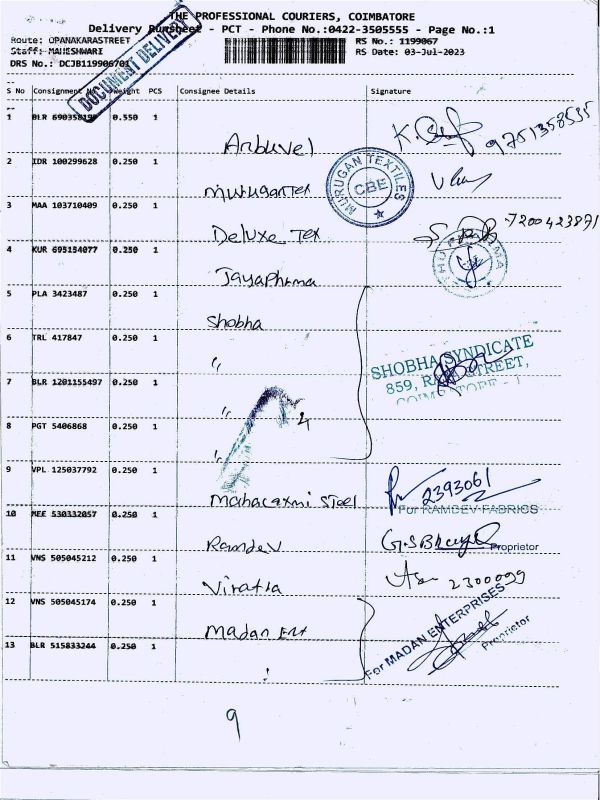 THE PROFESSIONAL COURIERS, COIMBATORE
Delivery Runsheet - PCT - Phone No.:0422-3505555 - Page No.:1
Route: OPANAKARASTREET
RS No.: 1199067
Staff: MAHESHWARI
RS Date: 03-Jul-2023
DRS No.: DCJB119906701
DOCUMENT DELIVERY
S No Consignment No Weight PCS Consignee Details Signature
1 BLR 690358199 0.550 1 Arbuvel 9751358535
2 IDR 100299628 0.250 1 MuruganTex
MURUGAN TEXTILES CBE
3 MAA 103710409 0.250 1 Deluxe Tex 7200423871
4 KUR 695154077 0.250 1 Jayaphrma
5 PLA 3423487 0.250 1 Shobha
6 TRL 417847 0.250 1 "
SHOBHA SYNDICATE
859, STREET,
7 BLR 1201155497 0.250 1 "
8 PGT 5406868 0.250 1 "
4
9 VPL 125037792 0.250 1 Mahalaxmi Steel 2393061
For RAMDEV FABRICS
10 MEE 530332057 0.250 1 Ramdev
Proprietor
11 VNS 505045212 0.250 1 2300099
12 VNS 505045174 0.250 1 Madan Ent
For MADAN ENTERPRISES
Proprietor
13 BLR 515833244 0.250 1 "
9